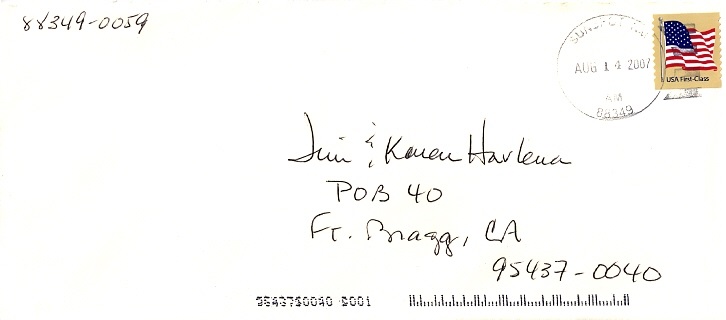 88349-0059
SUNSPOT
AUG 14 2007
AM
88349
USA First-Class
Jim & Karen Havlena
POB 40
Ft. Bragg, CA
95437-0040
95437$0040 B001